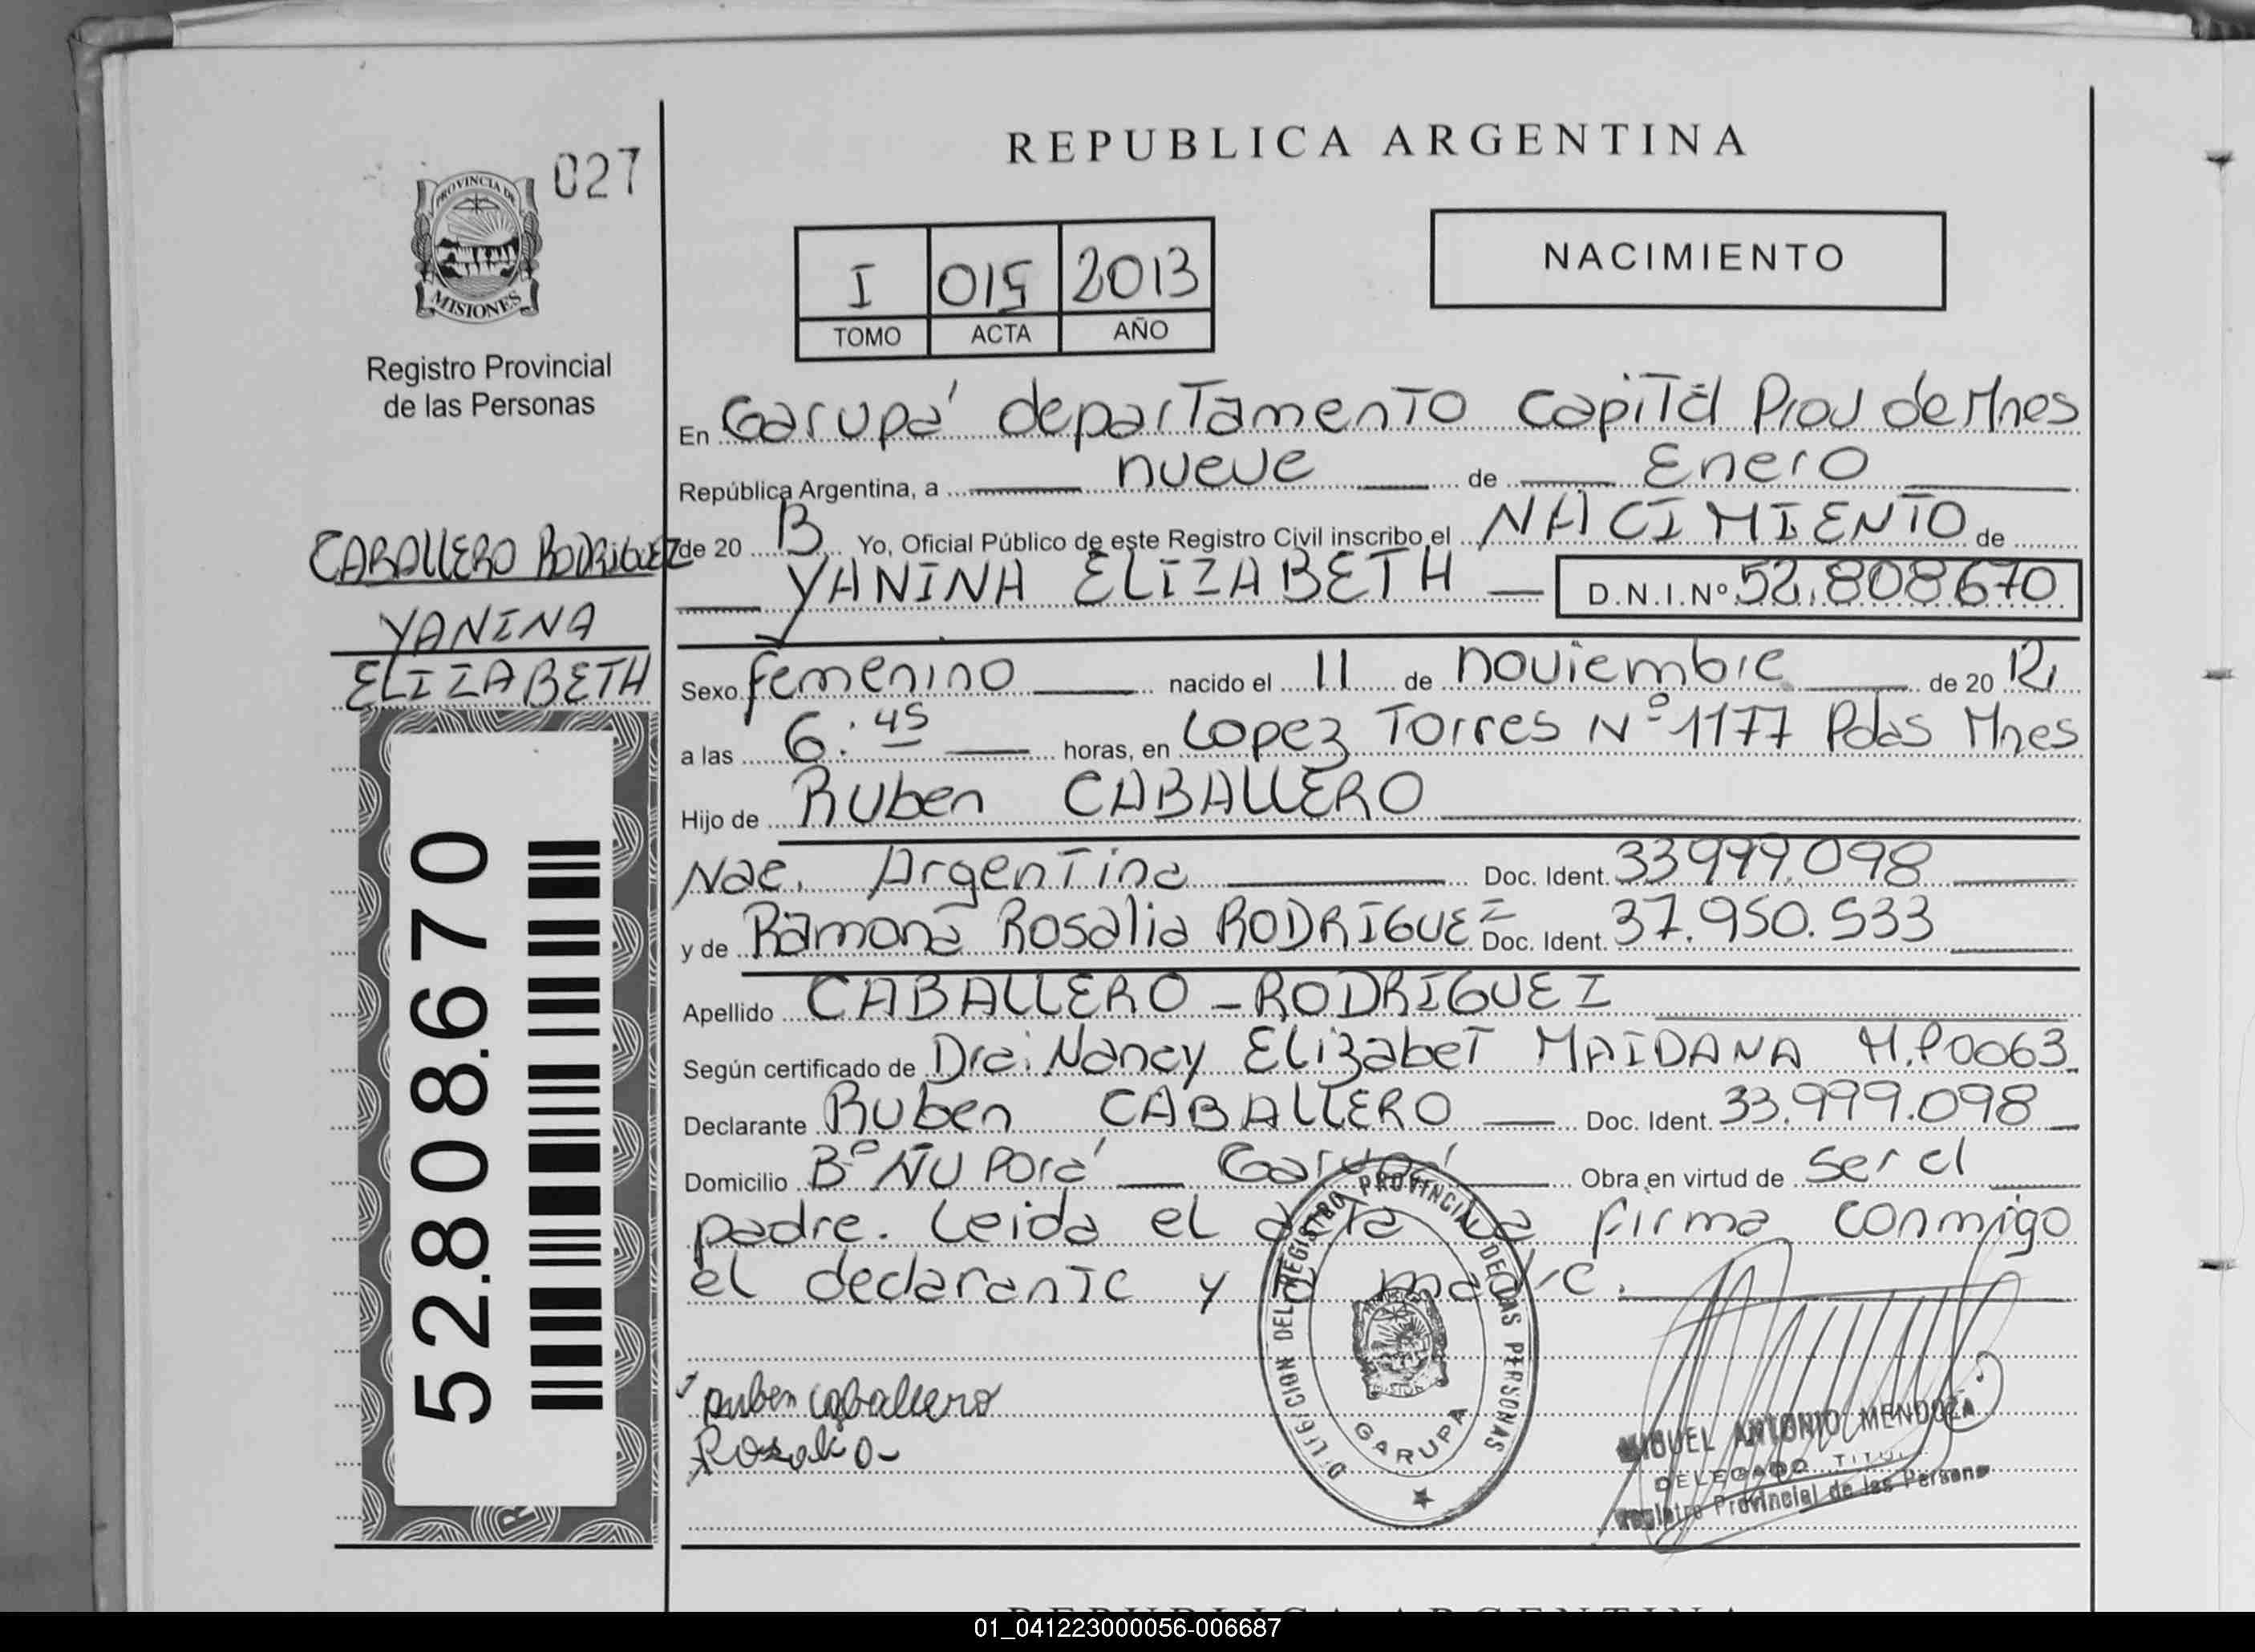 027
PROVINCIA DE
MISIONES
Registro Provincial
de las Personas
CABALLERO RODRIGUEZ
YANINA
ELIZABETH
52.808.670
REPUBLICA ARGENTINA
I 015 2013
TOMO ACTA AÑO
NACIMIENTO
En Garupá departamento Capital Prov de Mnes
República Argentina, a nueve de Enero
de 20 13 Yo, Oficial Público de este Registro Civil inscribo el NACIMIENTO de
YANINA ELIZABETH D.N.I.Nº 52.808670
Sexo femenino nacido el 11 de noviembre de 20 12
a las 6:45 horas, en Lopez Torres Nº 1177 Pdas Mnes
Hijo de Ruben CABALLERO
Nac. Argentina Doc. Ident. 33999.098
y de Ramona Rosalia RODRIGUEZ Doc. Ident. 37.950.533
Apellido CABALLERO - RODRIGUEZ
Según certificado de Dra. Nancy Elizabet MAIDANA M.P0063
Declarante Ruben CABALLERO Doc. Ident. 33.999.098
Domicilio Bº ÑU Porá Garupá Obra en virtud de Ser el
padre. Leida el acta la firma conmigo
el declarante y la madre.
Ruben Caballero
Rosalia
DELEGACION DEL REGISTRO PROVINCIAL DE LAS PERSONAS
GARUPA
MIGUEL ANTONIO MENDOZA
DELEGADO
Registro Provincial de las Personas
REPUBLICA ARGENTINA
01_041223000056-006687